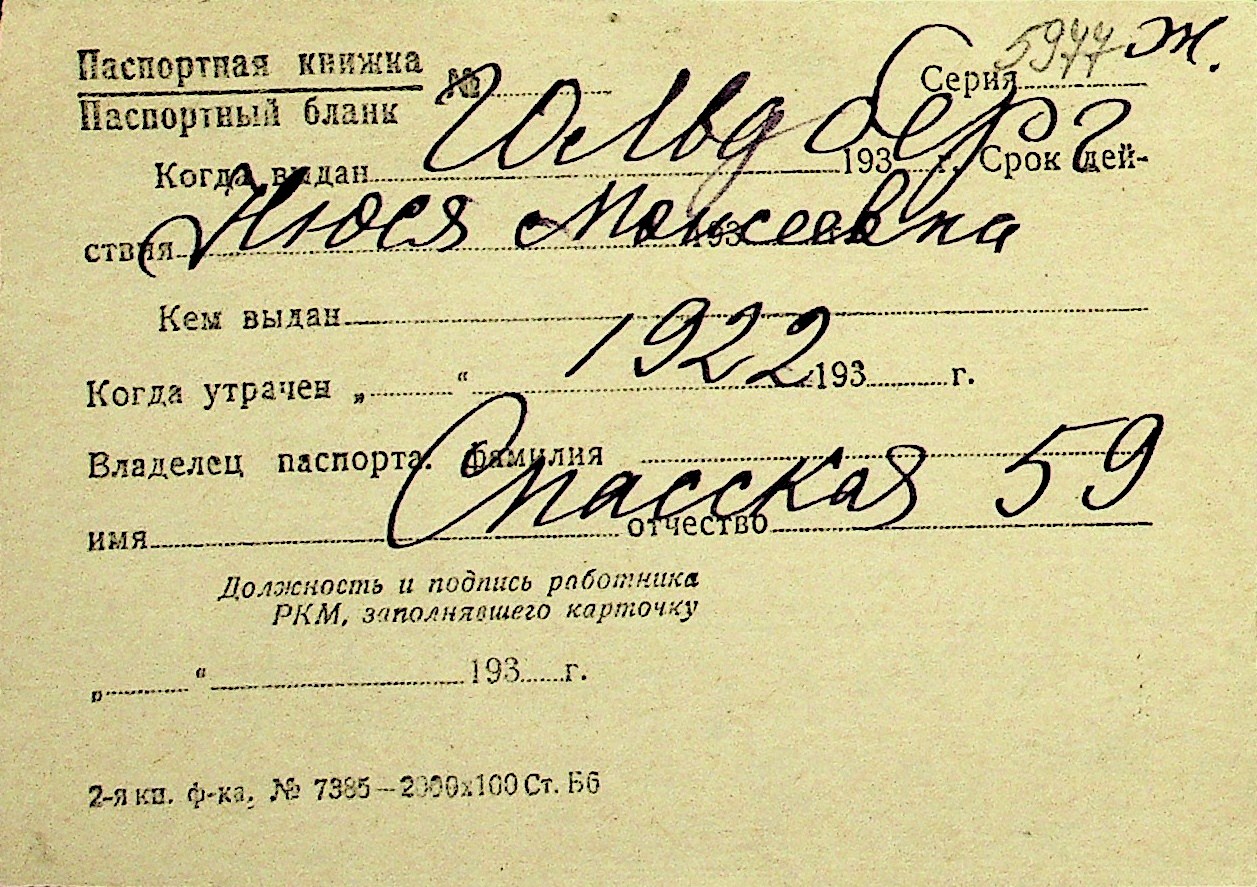 Паспортная книжка № Серия 5977 ж.
Паспортный бланк
Гольдберг
Когда выдан 193 г. Срок дей-
ствия 193
Нюся Моисеевна
Кем выдан
1922
Когда утрачен „ “ 193 г.
Владелец паспорта. фамилия
Спасская 59
имя отчество
Должность и подпись работника
РКМ, заполнявшего карточку
„ “ 193 г.
2-я кн. ф-ка, № 7385—2000х100 Ст. Б6